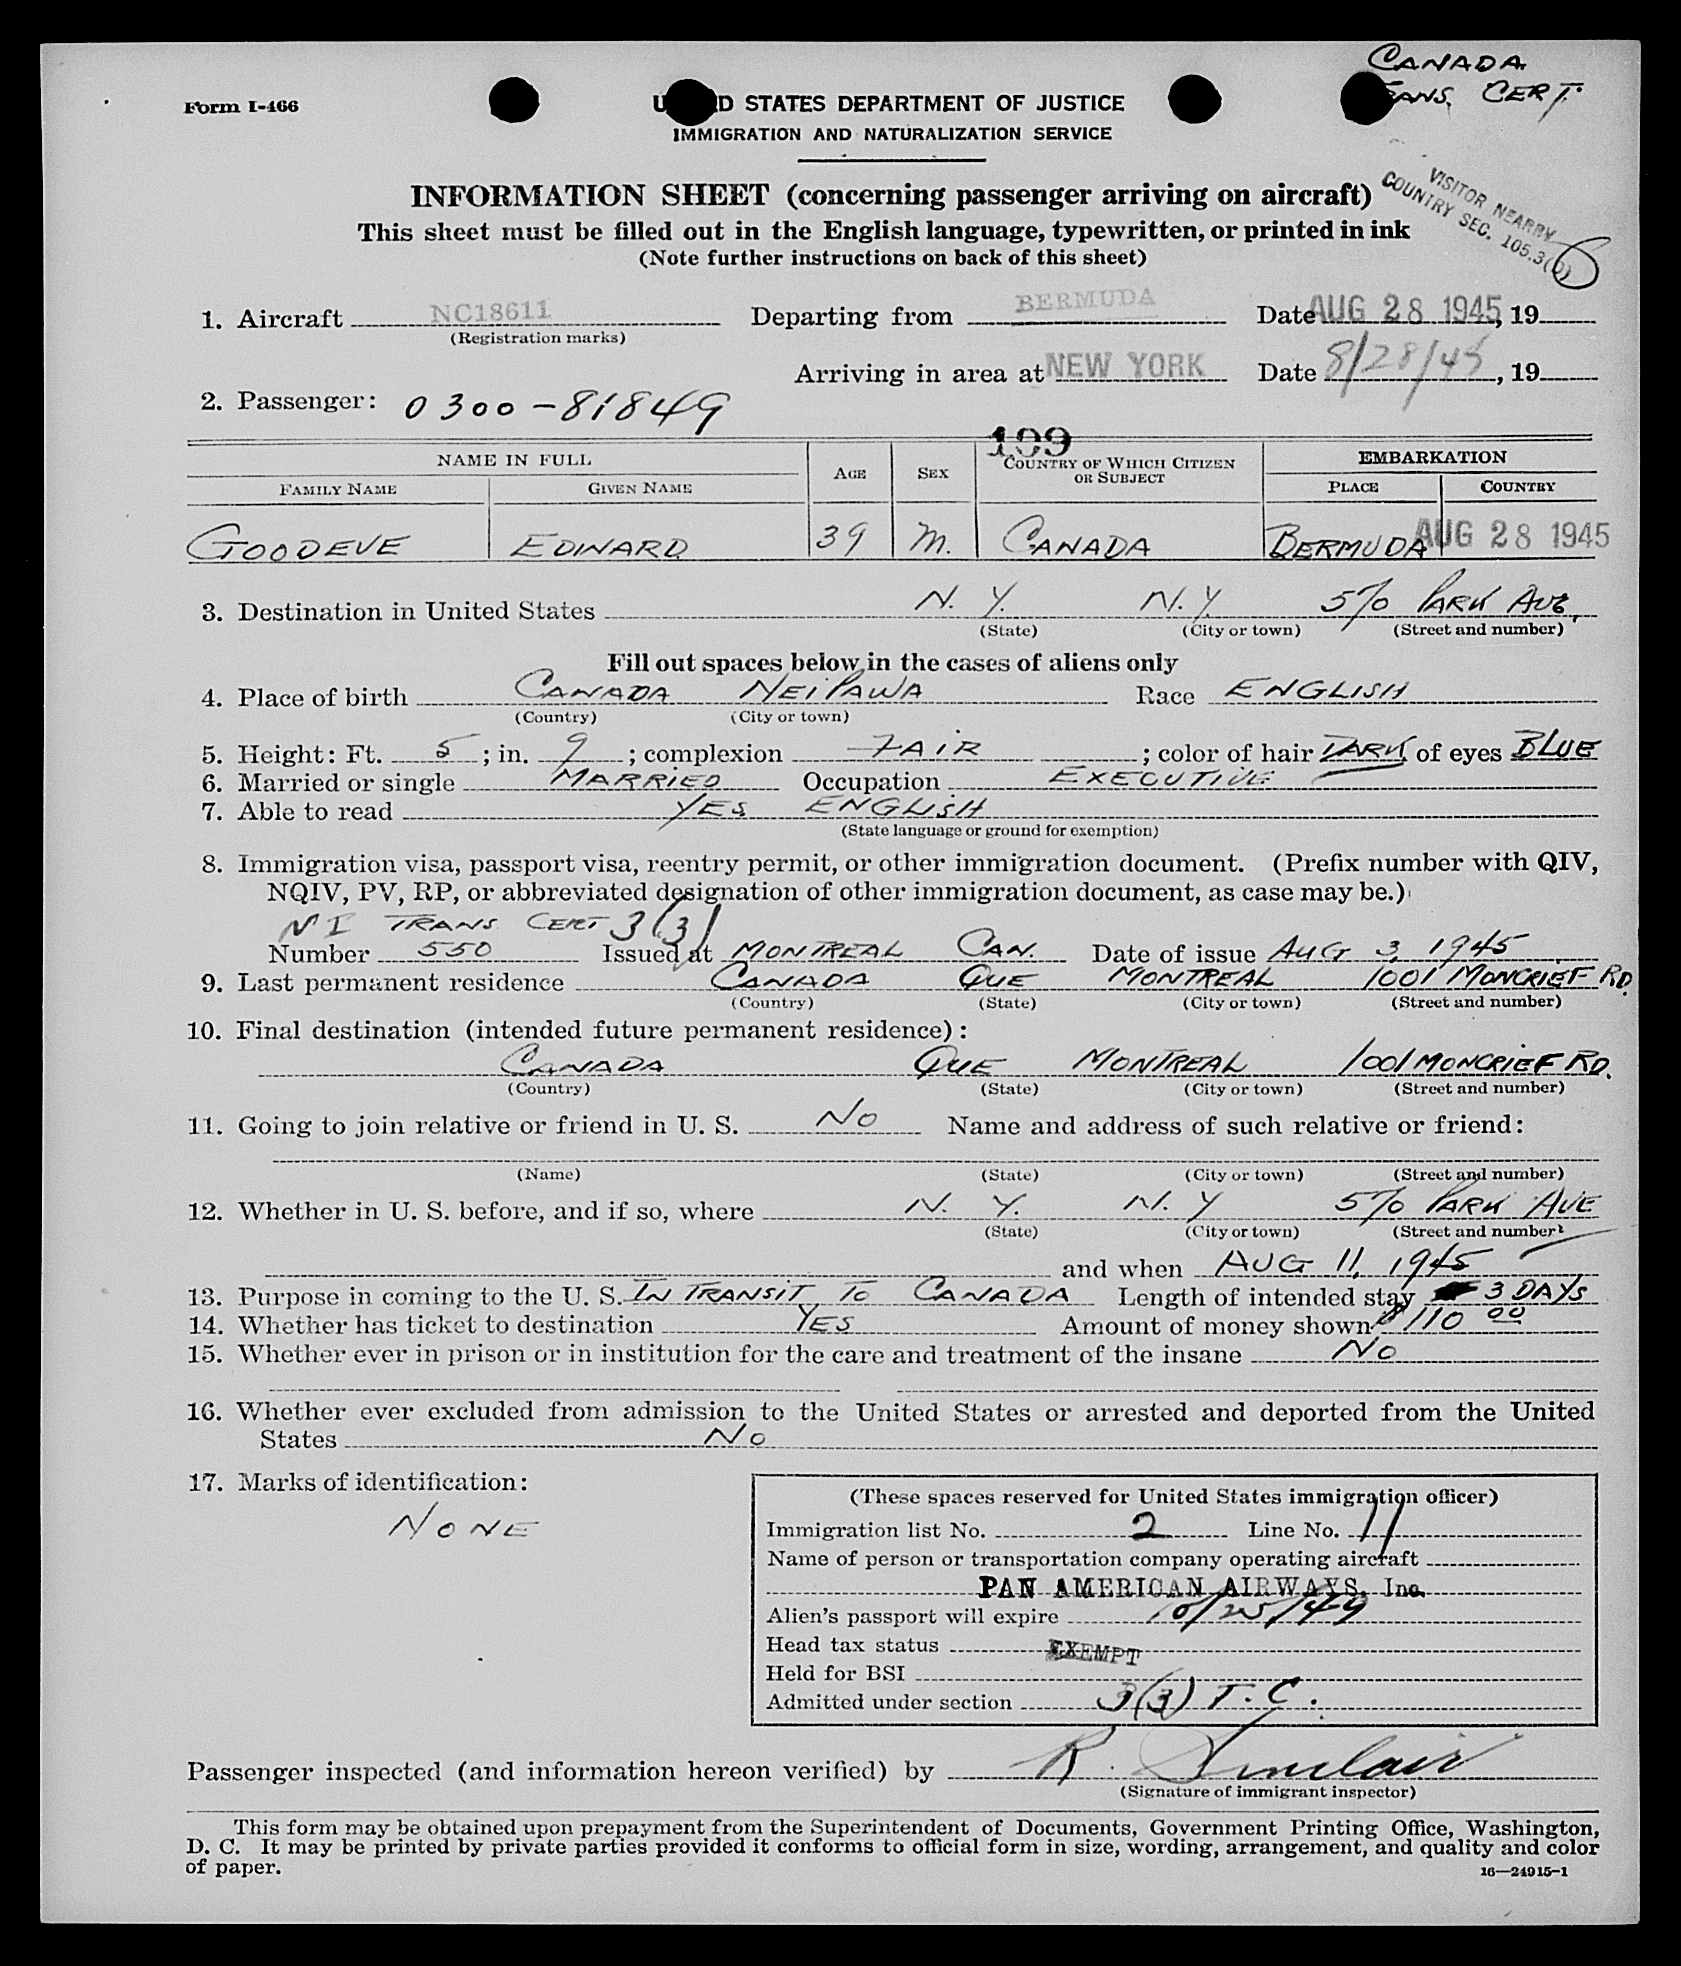 CANADA
TRANS. CERT.
Form I-466
UNITED STATES DEPARTMENT OF JUSTICE
IMMIGRATION AND NATURALIZATION SERVICE
VISITOR NEARBY
COUNTRY SEC. 105.3(b)
6
INFORMATION SHEET (concerning passenger arriving on aircraft)
This sheet must be filled out in the English language, typewritten, or printed in ink
(Note further instructions on back of this sheet)
1. Aircraft NC18611 Departing from BERMUDA Date AUG 28 1945, 19
(Registration marks)
Arriving in area at NEW YORK Date 8/28/45, 19
2. Passenger: 0300-81849
109
NAME IN FULL AGE SEX COUNTRY OF WHICH CITIZEN OR SUBJECT EMBARKATION
FAMILY NAME GIVEN NAME PLACE COUNTRY
GOODEVE EDWARD 39 M. CANADA BERMUDA AUG 28 1945
3. Destination in United States N. Y. N. Y. 570 PARK AVE,
(State) (City or town) (Street and number)
Fill out spaces below in the cases of aliens only
4. Place of birth CANADA NEIPAWA Race ENGLISH
(Country) (City or town)
5. Height: Ft. 5; in. 9; complexion FAIR; color of hair DARK of eyes BLUE
6. Married or single MARRIED Occupation EXECUTIVE
7. Able to read YES ENGLISH
(State language or ground for exemption)
8. Immigration visa, passport visa, reentry permit, or other immigration document. (Prefix number with QIV,
NQIV, PV, RP, or abbreviated designation of other immigration document, as case may be.)
NI TRANS CERT 3(3)
Number 550 Issued at MONTREAL CAN. Date of issue AUG 3, 1945
9. Last permanent residence CANADA QUE MONTREAL 1001 MONCRIEF RD.
(Country) (State) (City or town) (Street and number)
10. Final destination (intended future permanent residence):
CANADA QUE MONTREAL 1001 MONCRIEF RD.
(Country) (State) (City or town) (Street and number)
11. Going to join relative or friend in U. S. NO Name and address of such relative or friend:
(Name) (State) (City or town) (Street and number)
12. Whether in U. S. before, and if so, where N. Y. N. Y 570 PARK AVE
(State) (City or town) (Street and number)
and when AUG 11, 1945
13. Purpose in coming to the U. S. IN TRANSIT TO CANADA Length of intended stay 3 DAYS
14. Whether has ticket to destination YES Amount of money shown $110 00
15. Whether ever in prison or in institution for the care and treatment of the insane NO
16. Whether ever excluded from admission to the United States or arrested and deported from the United
States NO
17. Marks of identification:
NONE
(These spaces reserved for United States immigration officer)
Immigration list No. 2 Line No. 11
Name of person or transportation company operating aircraft
PAN AMERICAN AIRWAYS, Inc.
Alien's passport will expire 10/25/49
Head tax status EXEMPT
Held for BSI
Admitted under section 3(3) T.C.
Passenger inspected (and information hereon verified) by R. Sinclair
(Signature of immigrant inspector)
This form may be obtained upon prepayment from the Superintendent of Documents, Government Printing Office, Washington,
D. C. It may be printed by private parties provided it conforms to official form in size, wording, arrangement, and quality and color
of paper.
16—24915-1